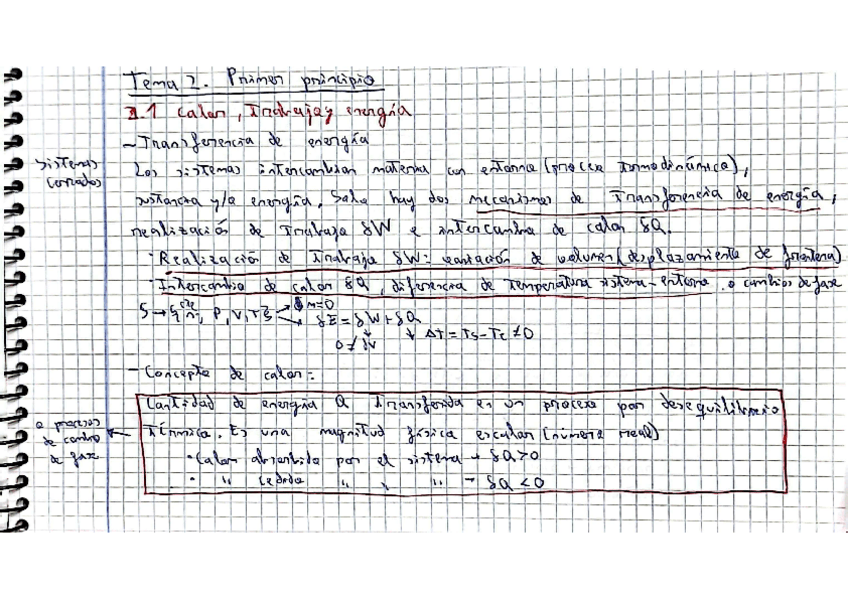 Tema 2. Primer principio
2.1 Calor, Trabajo y energía
- Transferencia de energía
sistemas cerrados
Los sistemas intercambian materia con entorno (proceso termodinámico),
sustancia y/o energía, Solo hay dos mecanismos de Transferencia de energía,
realización de trabajo δW e intercambio de calor δQ.
· Realización de Trabajo δW: variación de volumen (desplazamiento de frontera)
· Intercambio de calor δQ, diferencia de temperatura sistema-entorno. o cambios de fase
S → P, V, T → m=0
→ δE = δW + δQ
0 ≠ δV ΔT = Ts - Te ≠ 0
- Concepto de calor:
Cantidad de energía Q Transferida en un proceso por desequilibrio
o procesos de cambio de fase ←
Térmico. Es una magnitud física escalar (número real)
· Calor absorbido por el sistema → δQ > 0
· " cedido " " " → δQ < 0